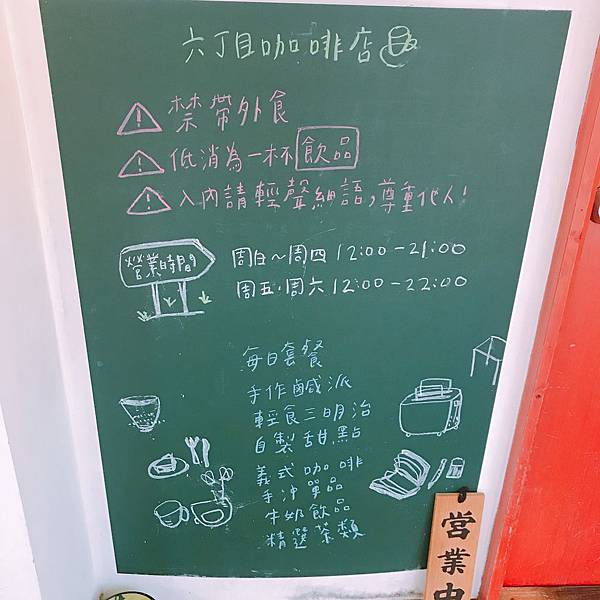 六丁目咖啡店
禁帶外食
低消為一杯飲品
入內請輕聲細語,尊重他人!
營業時間
周日~周四 12:00-21:00
周五.周六 12:00-22:00
每日套餐
手作鹹派
輕食三明治
自製甜點
義式咖啡
手沖單品
牛奶飲品
精選茶類
營業中